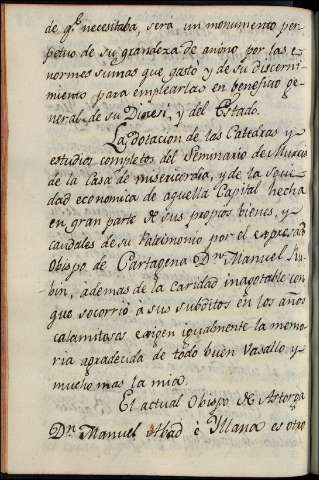 de q.e necesitaba, será un monumento per-
petuo de su grandeza de animo por las e-
normes sumas que gastò y de su discerni-
miento para emplearlas en beneficio ge-
neral de su Diocesi, y del Estado.
La dotacion de las Catedras y
estudios completos del Seminario de Murcia
de la Casa de misericordia, y de la Socie-
dad economica de aquella Capital hecha
en gran parte de sus propios bienes, y
caudales de su Patrimonio por el expresado
Obispo de Cartagena Dn. Manuel Ru-
bin, ademas de la caridad inagotable con
que socorrió a sus subditos en los años
calamitosos exigen igualmente la memo-
ria agradecida de todo buen Vasallo, y
mucho mas la mia.
El actual Obispo de Astorga
Dn. Manuel Abad è Yllana es otro